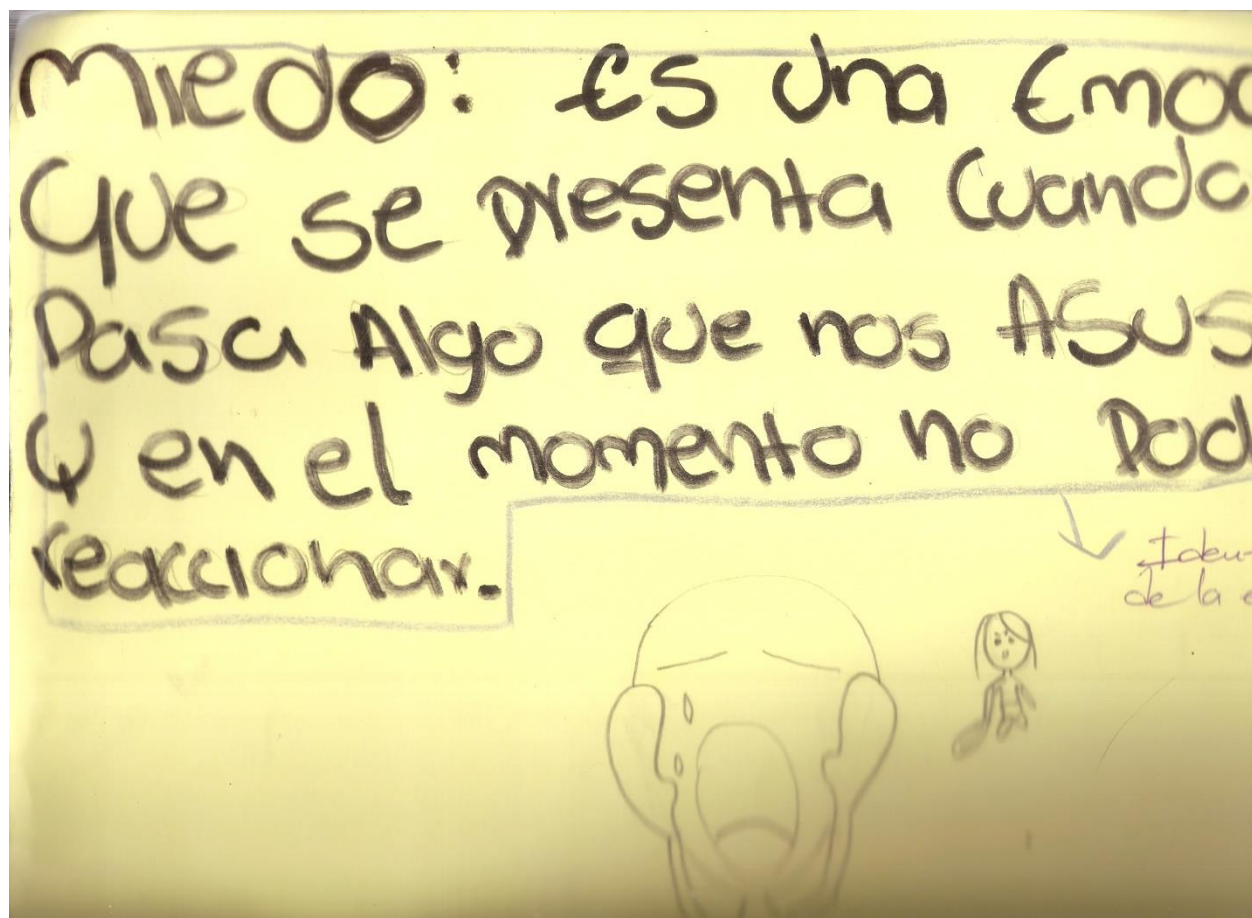 Miedo: Es una Emoc
Que se presenta Cuando
Pasa Algo que nos ASUS
Y en el momento no Pod
reaccionar.
Iden
de la e